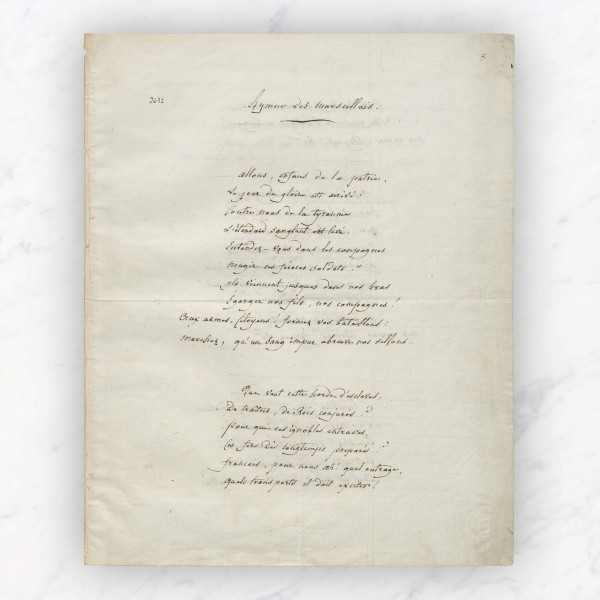 5
2632
Hymne des Marseillais.
allons, enfans de la patrie,
Le jour de gloire est arrivé :
Contre nous de la tyrannie
L'étendard sanglant est levé.
Entendez-vous dans les campagnes
mugir ces féroces soldats ?
ils viennent jusques dans vos bras
Egorger vos fils, vos compagnes !
Aux armes, Citoyens ! formez vos bataillons :
marchez, qu'un sang impur abreuve nos sillons.
Que veut cette horde d'esclaves,
De traîtres, de Rois conjurés ?
pour qui ces ignobles entraves,
Ces fers dès longtemps préparés
français, pour nous ah! quel outrage,
quels transports il doit exciter !